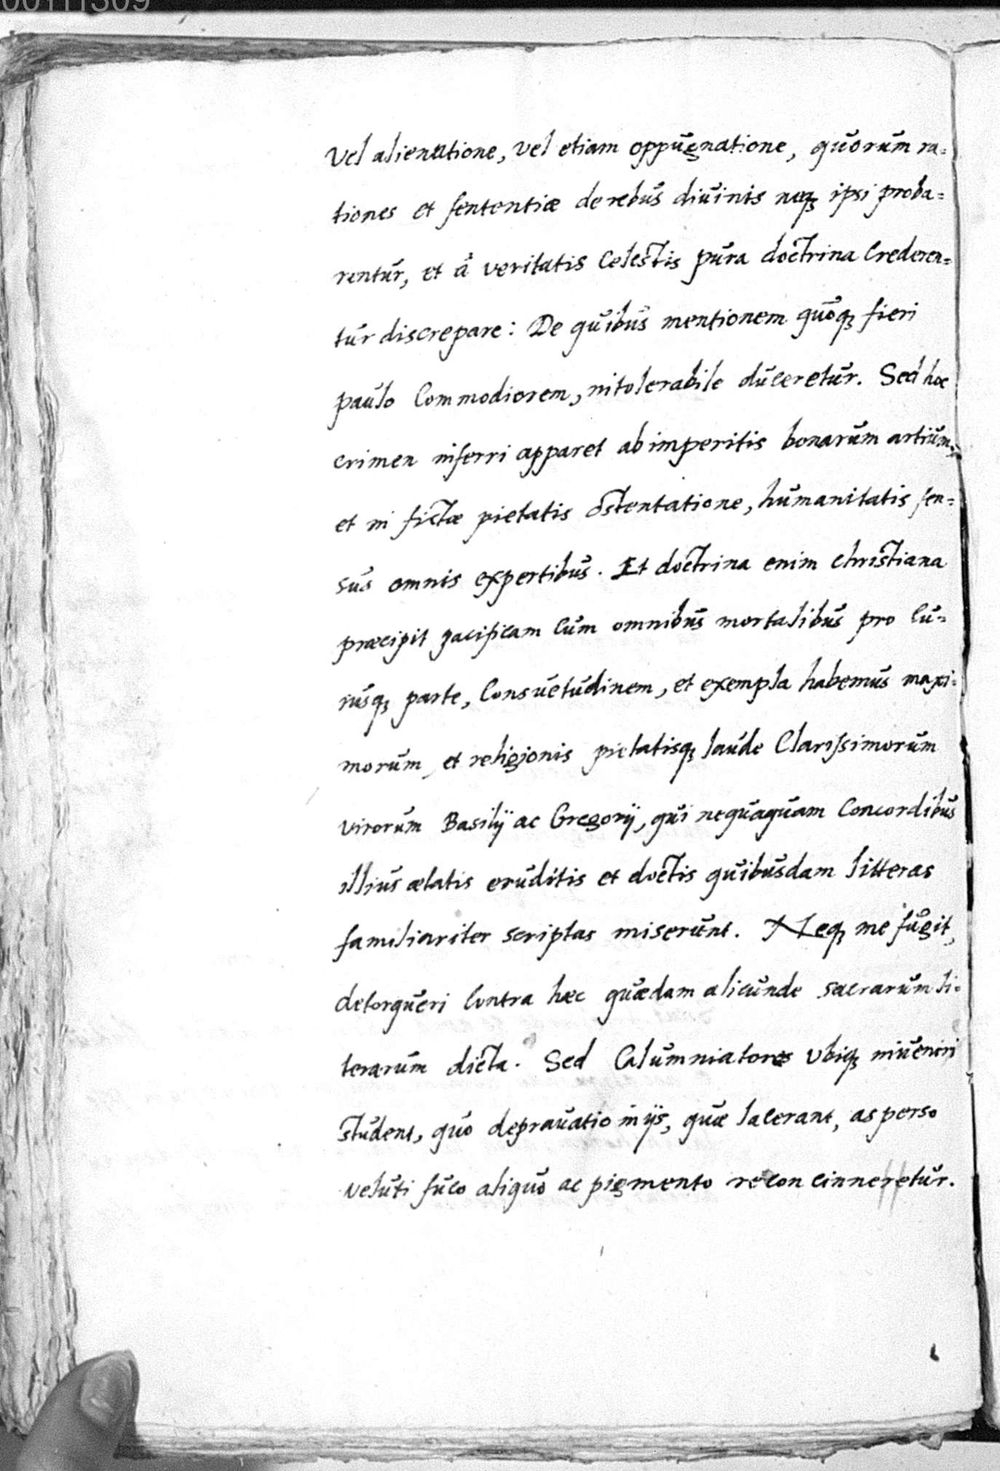 00111309
Vel alienatione, vel etiam oppugnatione, quorum ra-
tiones et sententiæ de rebus diuinis neq; ipsi proba-
rentur, et â veritatis celestis pura doctrina crederen-
tur discrepare: De quibus mentionem quoq; fieri
paulo commodiorem, intolerabile duceretur. Sed hoc
crimen inferri apparet ab imperitis bonarum artium,
et in fictæ pietatis ostentatione, humanitatis sen-
sus omnis expertibus. Et doctrina enim christiana
præcipit pacificam cum omnibus mortalibus pro cu-
iusq; parte, consuetudinem, et exempla habemus maxi-
morum, et religionis pietatisq; laude clarissimorum
virorum Basilij ac Gregorij, qui nequaquam concordibus
illius ætatis eruditis et doctis quibusdam litteras
familiariter scriptas miserunt. Neq; me fugit,
detorqueri contra hæc quædam alicunde sacrarum li-
terarum dicta. Sed calumniatores vbiq; inueniri
student, quo deprauatio in ijs, quæ lacerant, asperso
veluti fuco aliquo ac pigmento reconcinneretur.